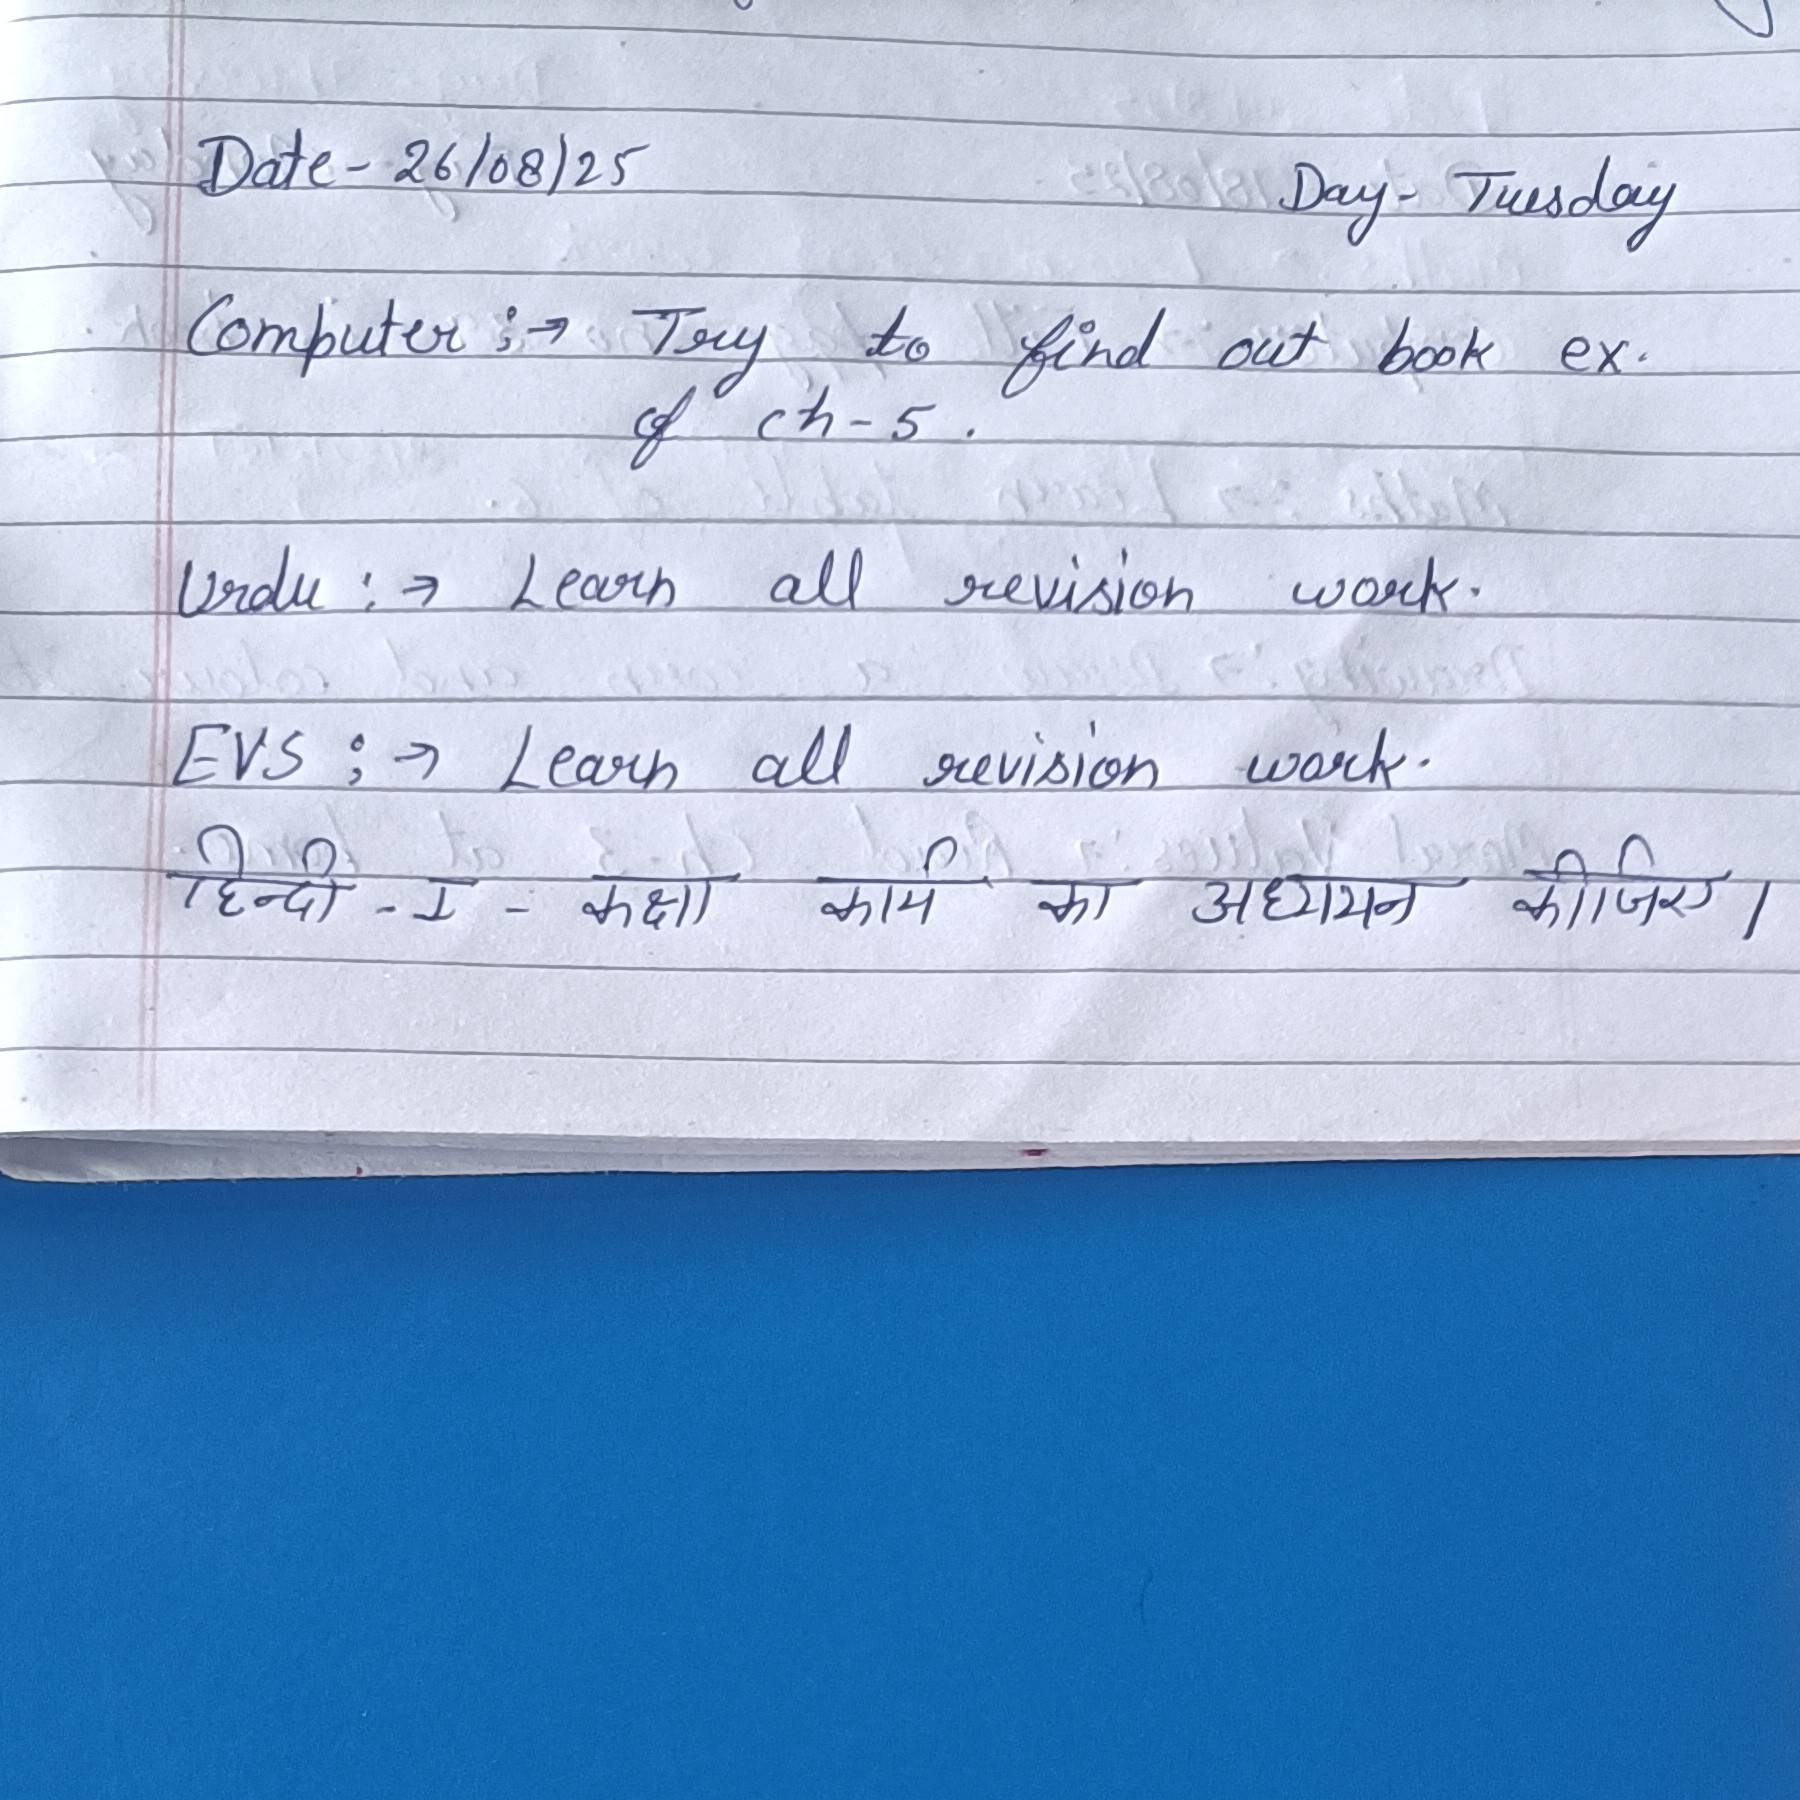 Date - 26/08/25 Day - Tuesday
Computer :→ Try to find out book ex.
of ch-5.
Urdu :→ Learn all revision work.
EVS :→ Learn all revision work.
हिन्दी - I - कक्षा कार्य का अध्ययन कीजिए।